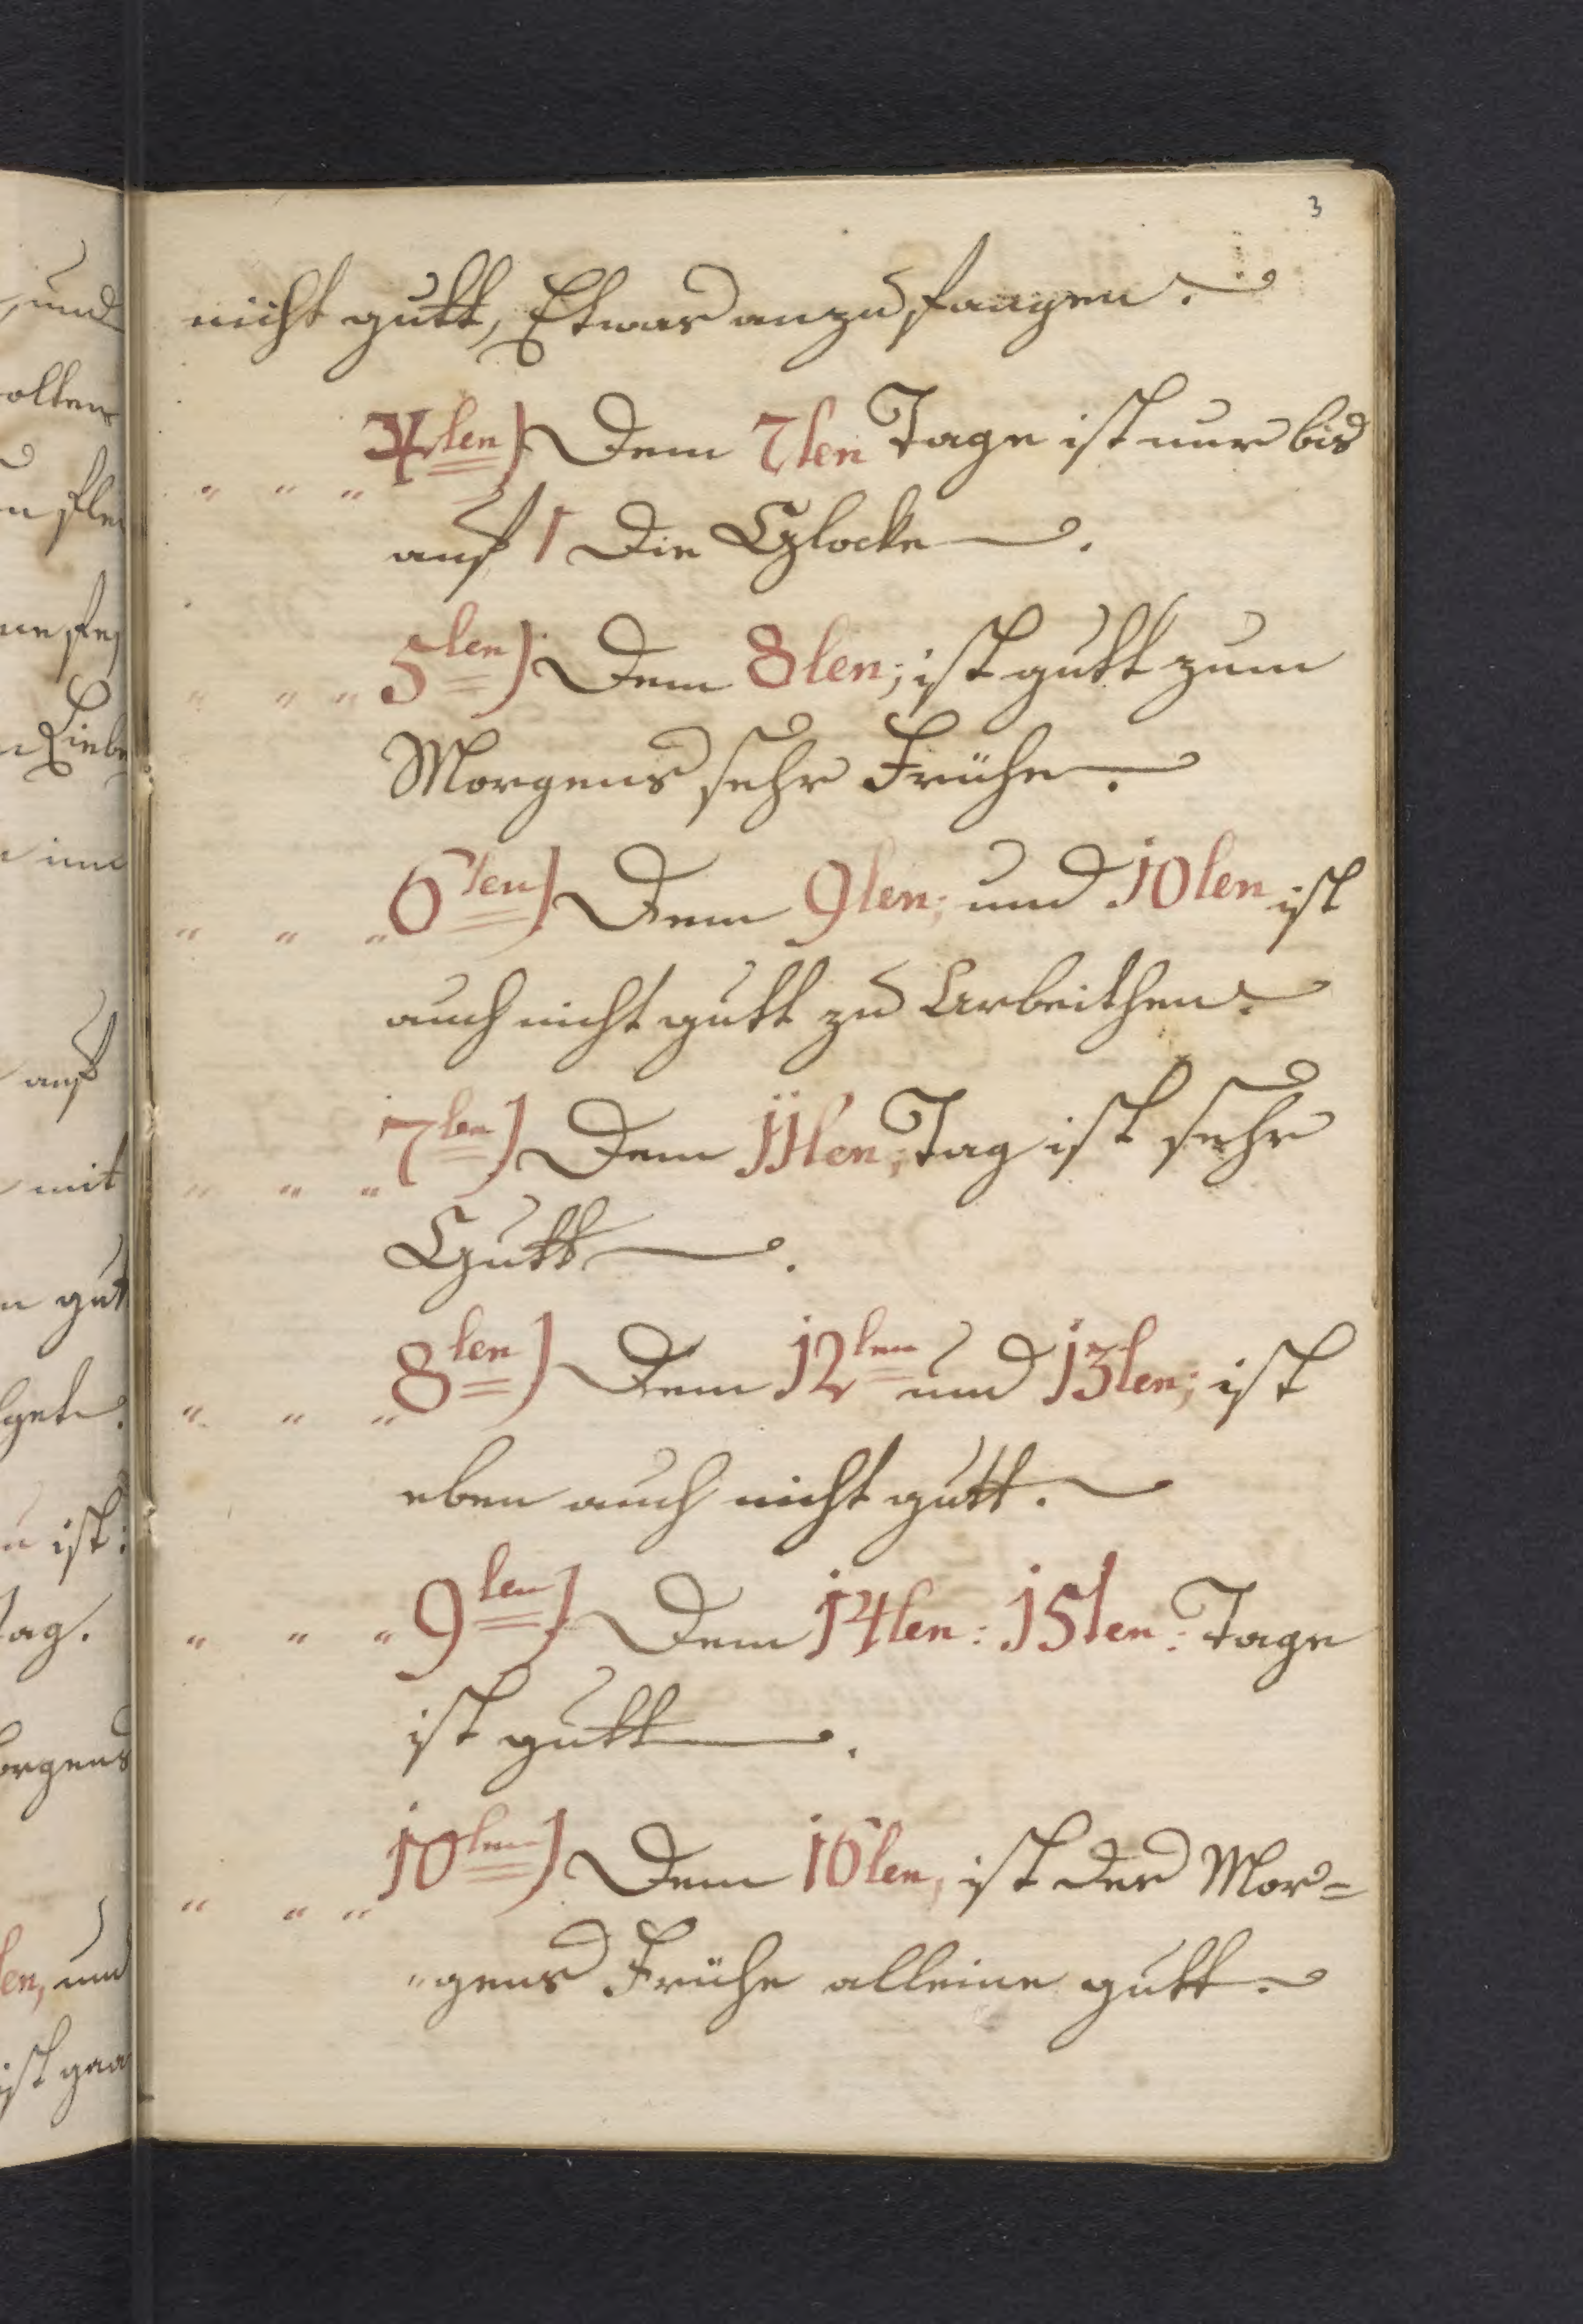 3
nicht gutt, Etwas anzufangen.
" " " 4ten) Dem 7ten Tage ist nur bis
auf 1 Die Glocke.
" " " 5ten) Dem 8ten; ist gutt zum
Morgens sehr Frühe.
" " " 6ten) Dem 9ten; und 10ten ist
auch nicht gutt zu Arbeithen.
" " " 7ten) Dem 11ten; Tag ist sehr
Gutt.
" " " 8ten) Dem 12ten und 13ten; ist
eben auch nicht gutt.
" " " 9ten) Dem 14ten: 15ten: Tage
ist gutt.
" " " 10ten) Dem 16ten, ist der Mor=
"gens Frühe alleine gutt.